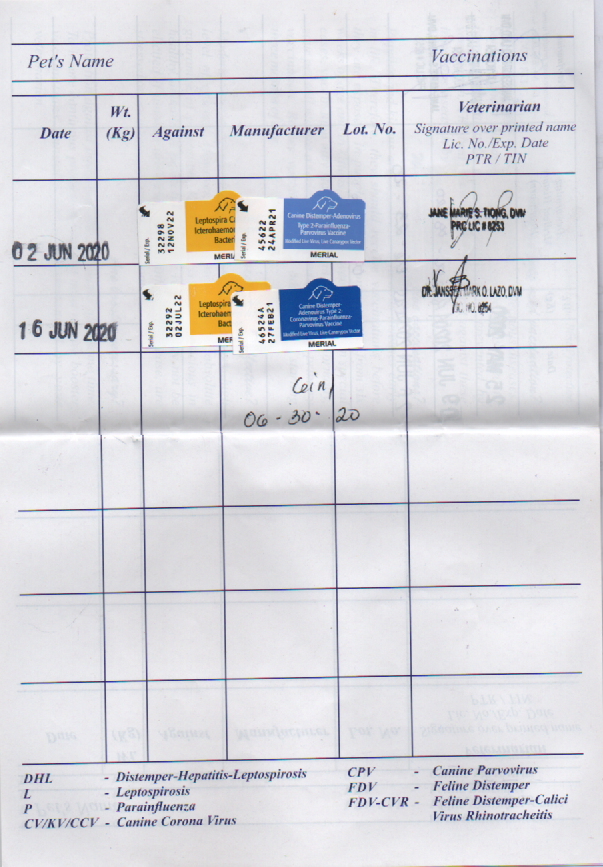 Pet's Name Vaccinations
Date Wt. (Kg) Against Manufacturer Lot. No. Veterinarian
Signature over printed name
Lic. No./Exp. Date
PTR / TIN
02 JUN 2020
Serial / Exp.
32298
12NOV22
Leptospira
Icterohaemor
Bacteri
MERI
Serial / Exp.
45622
24APR21
Canine Distemper-Adenovirus
Type 2-Parainfluenza-
Parvovirus Vaccine
Modified Live Virus, Live Canarypox Vector
MERIAL
JANE MARIE S. TIONG, DVM
PRC LIC # 8253
16 JUN 2020
Serial / Exp.
32292
02JUL22
Leptospira
Icterohaemo
Bact
MER
Serial / Exp.
46524A
27FEB21
Canine Distemper-
Adenovirus Type 2
Coronavirus-Parainfluenza-
Parvovirus Vaccine
Modified Live Virus, Live Canarypox Vector
MERIAL
DR. JANSSEN MARK O. LAZO, DVM
8254
06-30-20
DHL - Distemper-Hepatitis-Leptospirosis
L - Leptospirosis
P - Parainfluenza
CV/KV/CCV - Canine Corona Virus
CPV - Canine Parvovirus
FDV - Feline Distemper
FDV-CVR - Feline Distemper-Calici
Virus Rhinotracheitis